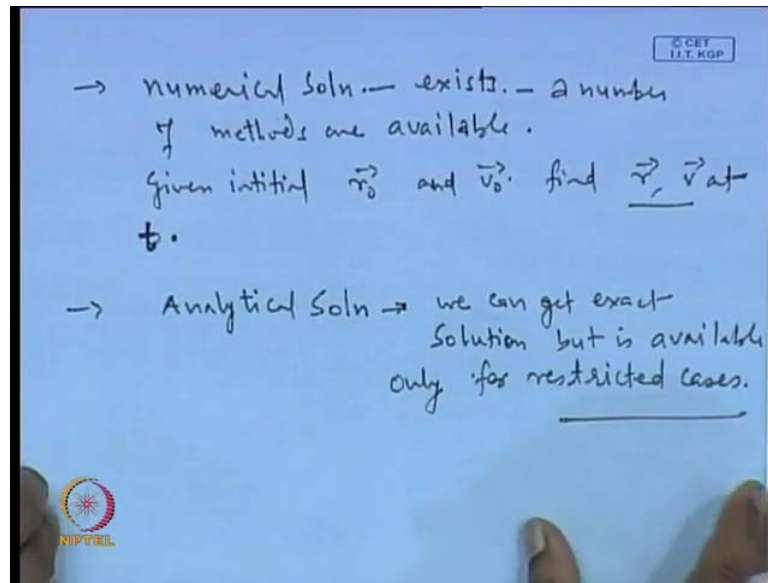 © CET
I.I.T. KGP
→ numerical Soln. — exists. — a number
of methods are available.
Given intitial r₀ and v₀. find r, v at
t.
→ Analytical Soln → we can get exact
Solution but is available
only for restricted cases.
NPTEL